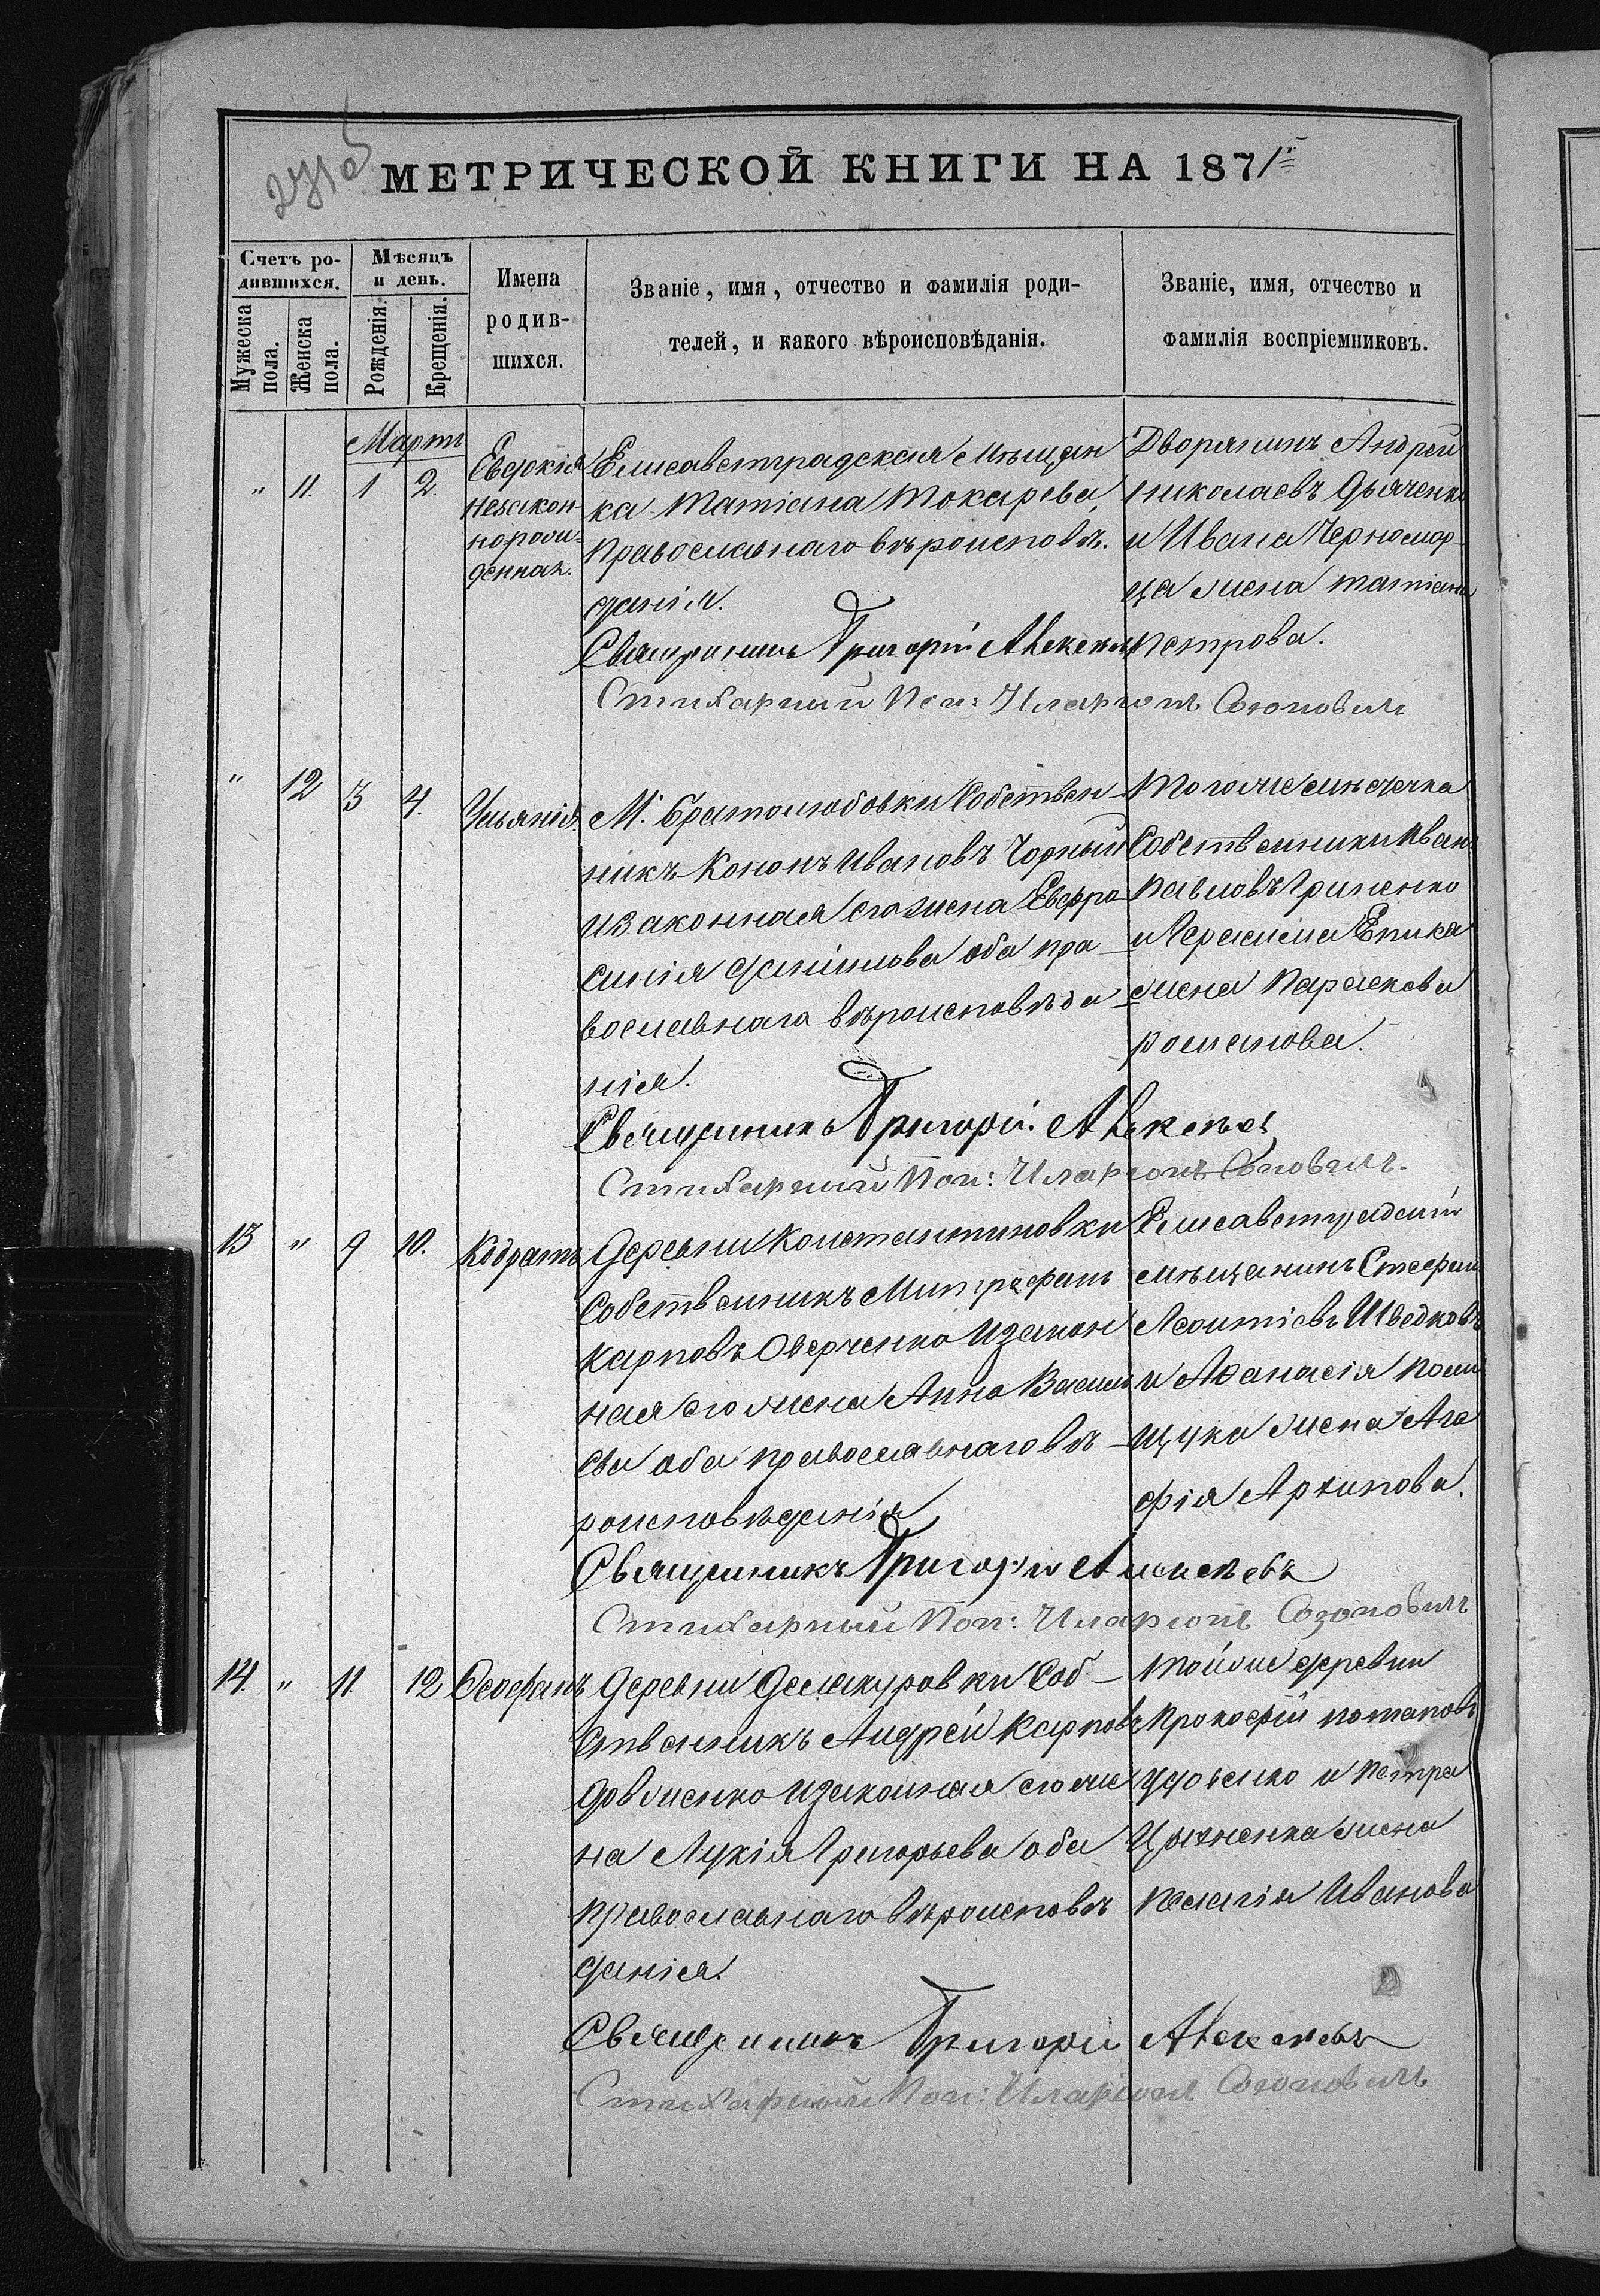 МЕТРИЧЕСКОЙ КНИГИ НА 1871й
Счетъ ро-
дившихся.
Мужеска
пола.
Женска
пола.
Мѣсяцъ
и день.
Рожденія.
Крещенія.
Имена
родив-
шихся.
Званіе, имя, отчество и фамилія роди-
телей, и какого вѣроисповѣданія.
Званіе, имя, отчество и
фамилія воспріемниковъ.
Мартъ
" 11. 1 2.
Евдокія
незакон-
норож-
денная.
Елисаветградская мѣщан
ка Татіана Токарева,
православнаго вѣроисповѣ-
данія.
Священникъ Григорій Алексѣевъ
Стихарный Пон: Иларіонъ Созоновичъ
Дворянинъ Андрей
Николаевъ Дьяченко
и Ивана Черномор-
ца жена Татіана
Петрова.
" 12 3 4. Ульянія.
М. Братолюбовки Собствен-
никъ Кононъ Ивановъ Чорный
и законная его жена Евфро-
синія Даніилова оба пра-
вославнаго вѣроисповѣда-
нія.
Священникъ Григорій Алексѣев
Стихарный Пон: Иларіонъ Созоновичъ.
Того же мѣстечка
Собственники Иванъ
Павловъ Гриненко
и Герасима Епика
жена Параскева
Романова.
13 " 9 10. Кодратъ
Деревни Константиновки
Собственникъ Митрофанъ
Карповъ Оверченко и закон
ная его жена Анна Василь
ева оба православнаго вѣ-
роисповѣданія
Священникъ Григорій Алексѣевъ
Стихарный Пон: Иларіонъ Созоновичъ
Елисаветградскій
мѣщанинъ Стефанъ
Леонтіевъ Шведковъ
и Аѳанасія
жена Ага
фія Архипова.
14. " 11. 12 Ѳеофанъ
Деревни Соб-
ственникъ Андрей Карповъ
Довженко и законная его же
на Лукія Григорьева оба
православнаго вѣроисповѣ
данія.
Священникъ Григорій Алексѣевъ
Стихарный Пон: Иларіонъ Созоновичъ
Той же деревни
Прокофій Потаповъ
Удовенко и Петра
жена
Пелагія Иванова